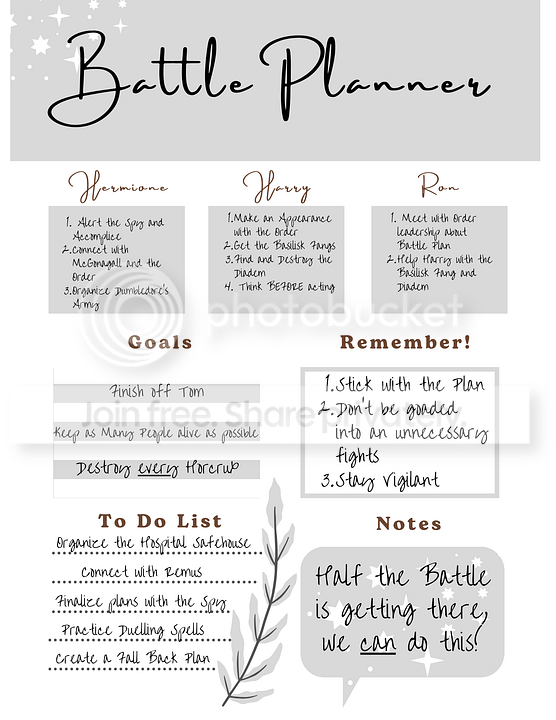 Battle Planner
Hermione
1. Alert the Spy and
Accomplice
2.Connect with
McGonagall and the
Order
3.Organize Dumbledore's
Army
Harry
1.Make an Appearance
with the Order
2.Get the Basilisk Fangs
3.Find and Destroy the
Diadem
4. Think BEFORE acting
Ron
1. Meet with Order
leadership about
Battle Plan
2.Help Harry with the
Basilisk Fang and
Diadem
photobucket
Goals
Finish off Tom
Keep as Many People alive as possible
Destroy every Horcrux
Remember!
1.Stick with the Plan
2.Don't be goaded
into an unnecessary
fights
3.Stay Vigilant
Join free. Share privately
To Do List
Organize the Hospital Safehouse
Connect with Remus
Finalize plans with the Spy
Practice Duelling Spells
Create a Fall Back Plan
Notes
Half the Battle
is getting there,
we can do this!